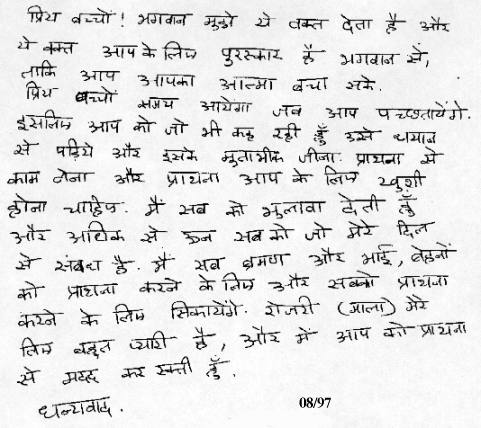 प्रिय बच्चों! भगवान मुझे ये वक्त देता है और
ये वक्त आप के लिए पुरस्कार है भगवान से,
ताकि आप आपका आत्मा बचा सके.
प्रिय बच्चों समय आयेगा जब आप पच्छतायेंगे.
इसलिए आप को जो भी कह रही हूँ उसे धयान
से पढ़िये और इसके मुताबीक जीना. प्राथना से
काम लेना और प्राथना आप के लिए खुशी
होना चाहिए. मैं सब को भुलावा देती हूँ
और अधिक से ऊन सब को जो मेरे दिल
से संबध है. मैं सब श्रमण और भाई, बेहनों
को प्राथना करने के लिए और सबको प्राथना
करने के लिए सिकायेंगे. रोजरी (माला) मेरे
लिए बहुत प्यारी है, और में आप को प्राथना
से मदद कर सक्ती हूँ.
धन्यवाद.
08/97